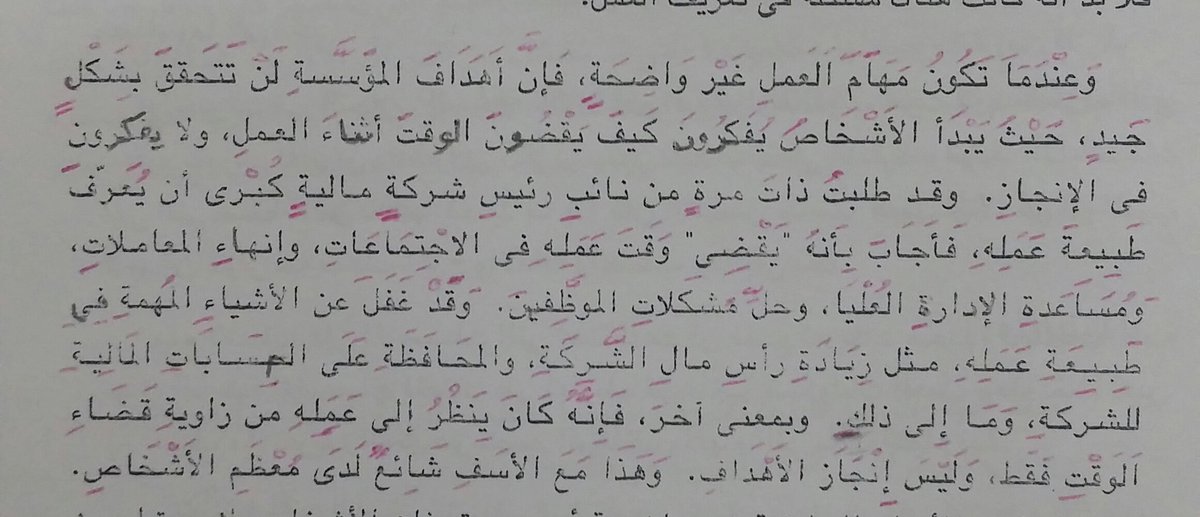 فلا بد أنه كانت هناك مشكلة فى تعريف العمل.
وَعِنْدَمَا تَكُونُ مَهَامُّ العملِ غَيْر وَاضِحَةٍ، فَإِنَّ أهدَافَ المؤسَّسةِ لَنْ تتَحققَ بِشَكْلٍ
جَيدٍ، حَيْثُ يَبْدَأ الأشْخَاصُ يُفَكرُونَ كَيفَ يَقْضُونَ الوقتَ أثناءَ العملِ، ولا يفكرون
فى الإنجازِ. وقد طلبتُ ذاتَ مرةٍ من نائبِ رئيسِ شركةٍ ماليةٍ كُبْرى أن يُعَرّفَ
طَبِيعةَ عَمَلِهِ، فَأجَابَ بِأنهُ "يَقْضِى" وَقتَ عَمَلِهِ فِى الاجْتِمَاعَاتِ، وإنهاءِ المعاملاتِ،
وَمُسَاعَدةِ الإدارةِ العُلْيا، وحلِّ مُشكلاتِ الموَظَّفِينَ. وَقَدْ غَفَلَ عن الأشياءِ المُهمةِ فِي
طَبِيعَةِ عَمَلِهِ، مثل زِيَادَةِ رأسِ مالِ الشَّرِكَةِ، والمُحَافظةِ عَلَى الحِسَابَاتِ المَاليةِ
للشركةِ، وَمَا إلى ذلكِ. وبمعنى آخرَ، فَإنَّهُ كَانَ يَنظُرُ إلى عَمَلِهِ من زاويةِ قَضَاءِ
الوَقْتِ فَقَط، وَلَيْسَ إنْجَازَ الأهْدَافِ. وَهَذَا مَعَ الأسَفِ شَائِعٌ لَدَى مُعْظَمِ الأشْخَاصِ.